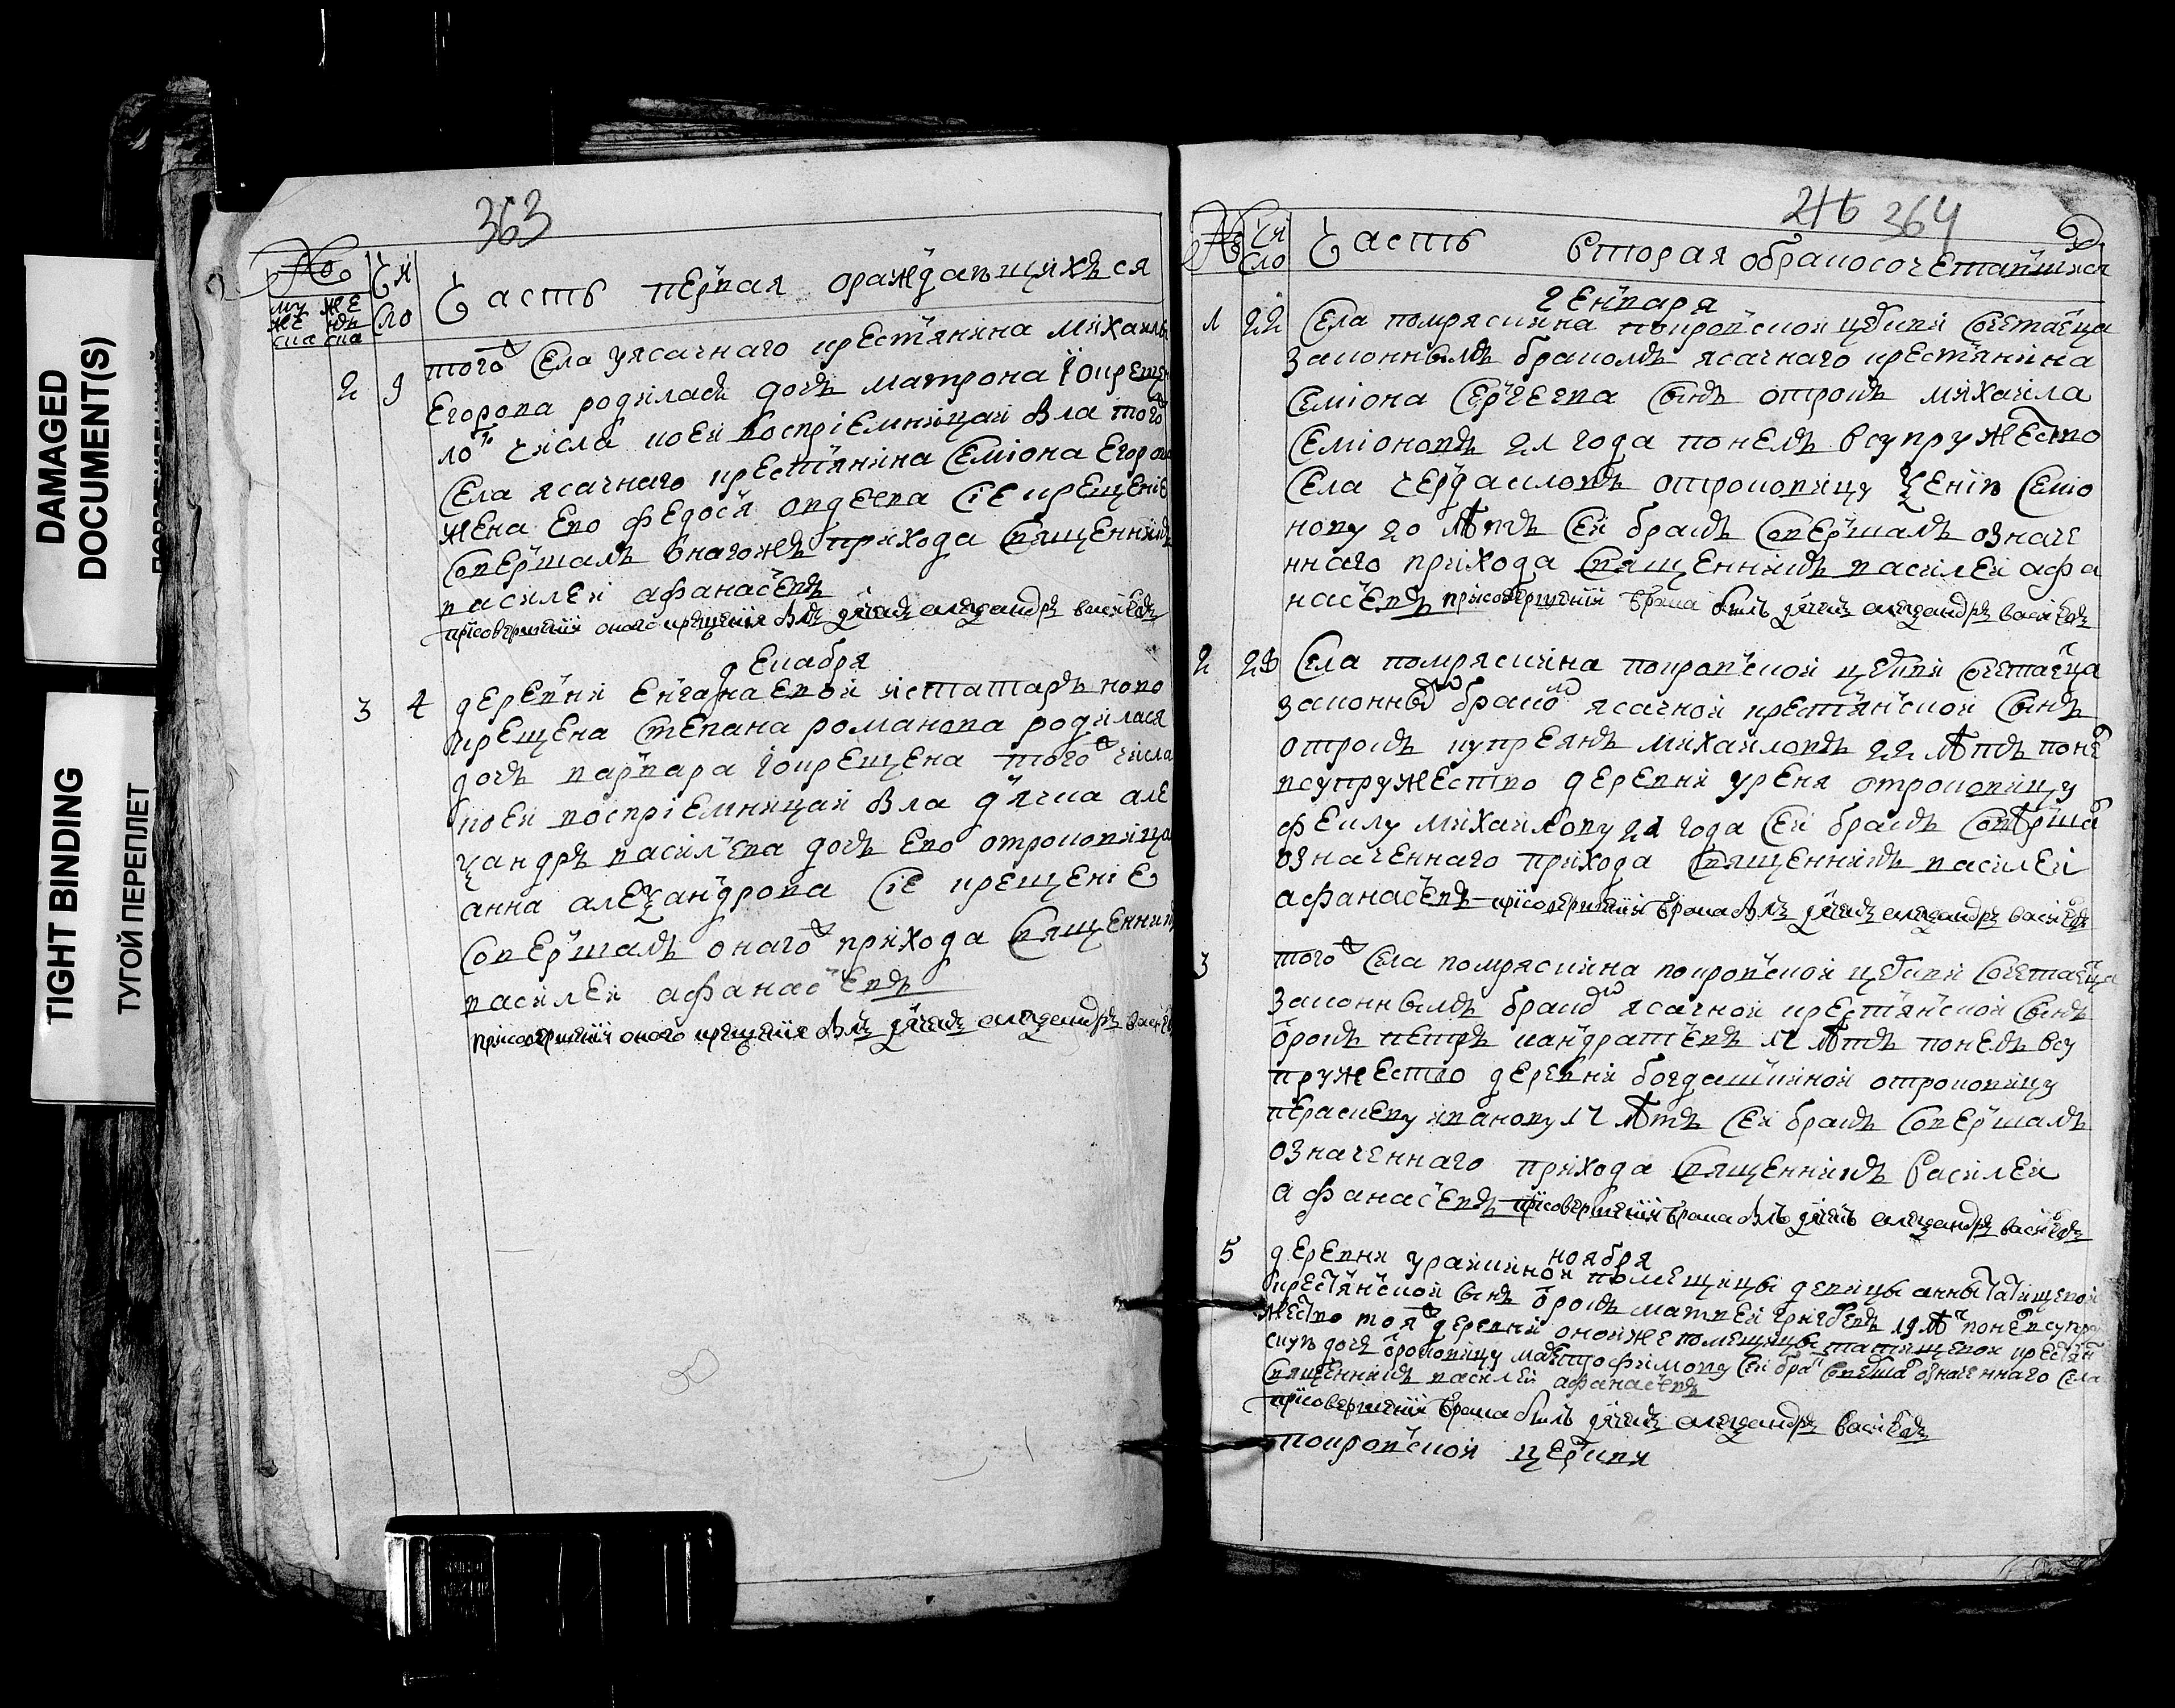 DAMAGED
DOCUMENT(S)
TIGHT BINDING
ТУГОЙ ПЕРЕПЛЕТ
363
№
Чи
сло
му
же
ска
же
нь
ска
Часть первая ораждавшихъся
того ж села уясачнаго крестьянина михаилы
2 9
Егорова родилась дочь матрона i окреще
числа коей воспрiемницаи была того ж
села ясачнаго крестьянина семiона Егорова
жена Ево федосья авдеева сiе крещенiе
совершалъ онагожъ прихода священникъ
василеи афанасьевъ
присовершенiи оного крещенiя былъ дячекъ алеѯандръ васильевъ
декабря
3 4
деревни Енганаевой истатаръ ново
крещена степана романова родилася
дочь варвара i окрещена того ж числа
коеи воспрiемницаи была дьячка але
ѯандръ васильева дочь Ево отроковица
анна алеѯандрова сiе крещенiе
совершалъ онаго ж прихода священникъ
василеи афанасьевъ
присовершенiи оного крещенiя былъ дячекъ алеѯандръ васильевъ
216 364
№
Чи
сло
Часть вторая обракосочетавшихся
генваря
1 22
села помряскина покровской церкви сочетаеца
законнымъ бракомъ ясачнаго крестьянина
семiона сергеева сынъ отрокъ михаила
семiоновъ 21 года понелъ всупружество
села чердакловъ отроковицу ѯенiю семiо
нову 20 лѣтъ сей бракъ совершалъ означе
ннаго прихода священникъ василеи афа
насьевъ присовершенiи брака былъ дячекъ алеѯандръ васильевъ
2 28
села помряскина покровской церкви сочетаеца
законным браком ясачной крестьянской сынъ
отрокъ купреянъ михаиловъ 22 лѣтъ понел
всупружество деревни уреня отроковицу
феклу михаилову 21 года сей бракъ совѣршал
означеннаго прихода священникъ василеи
афанасьевъ присовершенiи брака былъ дячекъ алеѯандръ васильевъ
3
того ж села помряскина покровской церкви сочетаеца
законнымъ браком ясачной крестьянской сынъ
отрокъ петръ кандратьевъ 17 лѣтъ понелъ всу
пружество деревни богдашкиной отроковицу
пераскеву иванову 17 лѣтъ сей бракъ совершалъ
означеннаго прихода священникъ василеи
афанасьевъ присовершенiи брака былъ дячекъ алеѯандръ васильевъ
ноября
5
деревни ураикиной помещицы девицы анны татищевой
крестьянской сынъ отрокъ матвей григорьевъ 19 лѣт понел всупру
жество тоя ж деревни онойже помещицы татищевои крестьян
скую дочь отроковицу тофимову сей брак совершал означеннаго села
священникъ василеи афанасьевъ
присовершенiи брака былъ дячекъ алеѯандръ васильевъ
покровской церкви